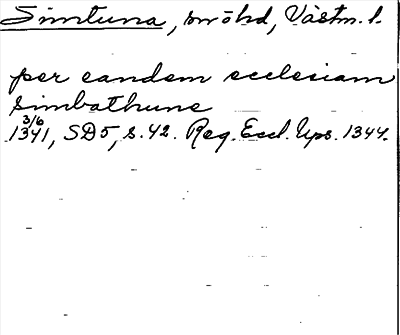 Simtuna, snöhd, Västm. l.
per eandem ecclesiam
simbathune
3/6
1341, SD5, s. 42. Reg. Eccl. Ups. 1344.